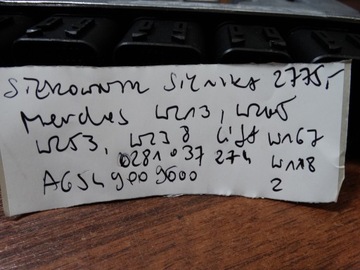 STEROWNIK SILNIKA 2775,-
Mercedes W213, W205
W253, W238 Lift W167
0281037274 W118
A6549009600 2